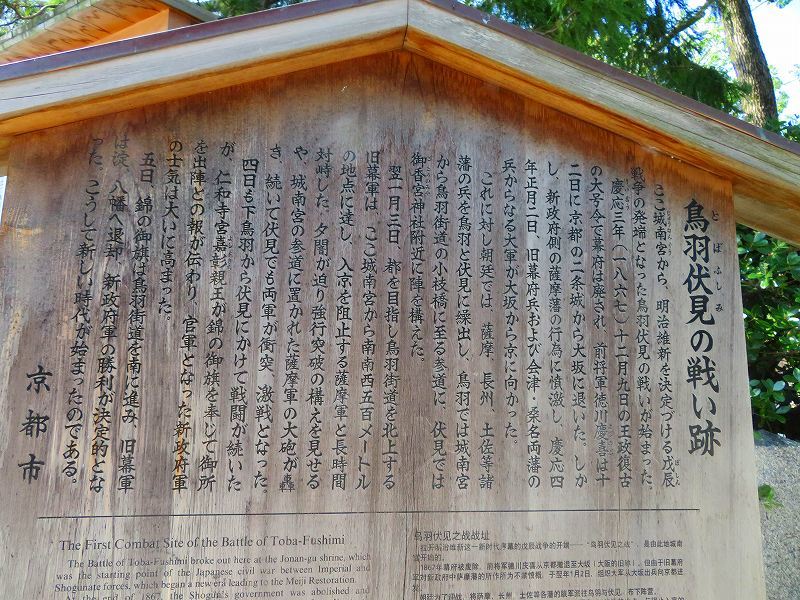 鳥羽伏見の戦い跡
とばふしみ
ここ城南宮から、明治維新を決定づける戊辰
ぼしん
戦争の発端となった鳥羽伏見の戦いが始まった。
慶応三年(一八六七)十二月九日の王政復古
の大号令で幕府は廃され、前将軍徳川慶喜は十
二日に京都の二条城から大坂に退いた。しか
し、新政府側の薩摩藩の行為に憤激し、慶応四
年正月二日、旧幕府兵および会津・桑名両藩の
兵からなる大軍が大坂から京に向かった。
これに対し朝廷では、薩摩、長州、土佐等諸
藩の兵を鳥羽と伏見に繰出し、鳥羽では城南宮
から鳥羽街道の小枝橋に至る参道に、伏見では
御香宮神社附近に陣を構えた。
翌一月三日、都を目指し鳥羽街道を北上する
旧幕軍は、ここ城南宮から南南西五百メートル
の地点に達し、入京を阻止する薩摩軍と長時間
対峙した。夕闇が迫り強行突破の構えを見せる
や、城南宮の参道に置かれた薩摩軍の大砲が轟
き、続いて伏見でも両軍が衝突、激戦となった。
四日も下鳥羽から伏見にかけて戦闘が続いた
が、仁和寺宮嘉彰親王が錦の御旗を奉じて御所
を出陣との報が伝わり、官軍となった新政府軍
の士気は大いに高まった。
五日、錦の御旗は鳥羽街道を南に進み、旧幕軍
は淀、八幡へ退却、新政府軍の勝利が決定的とな
った。こうして新しい時代が始まったのである。
京都市
The First Combat Site of the Battle of Toba-Fushimi
The Battle of Toba-Fushimi broke out here at the Jonan-gu shrine, which
was the starting point of the Japanese civil war between Imperial and
Shogunate forces, which began a new era leading to the Meiji Restoration.
At the end of 1867, the Shogun's government was abolished and
鳥羽伏见之战战址